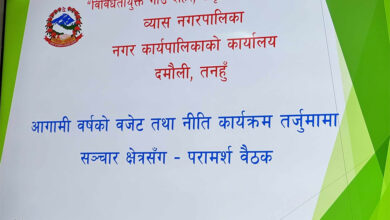 "विविधतायुक्त
व्यास नगरपालिका
नगर कार्यपालिकाको कार्यालय
दमौली, तनहुँ
आगामी वर्षको वजेट तथा नीति कार्यक्रम तर्जुमामा
सञ्चार क्षेत्रसँग - परामर्श बैठक